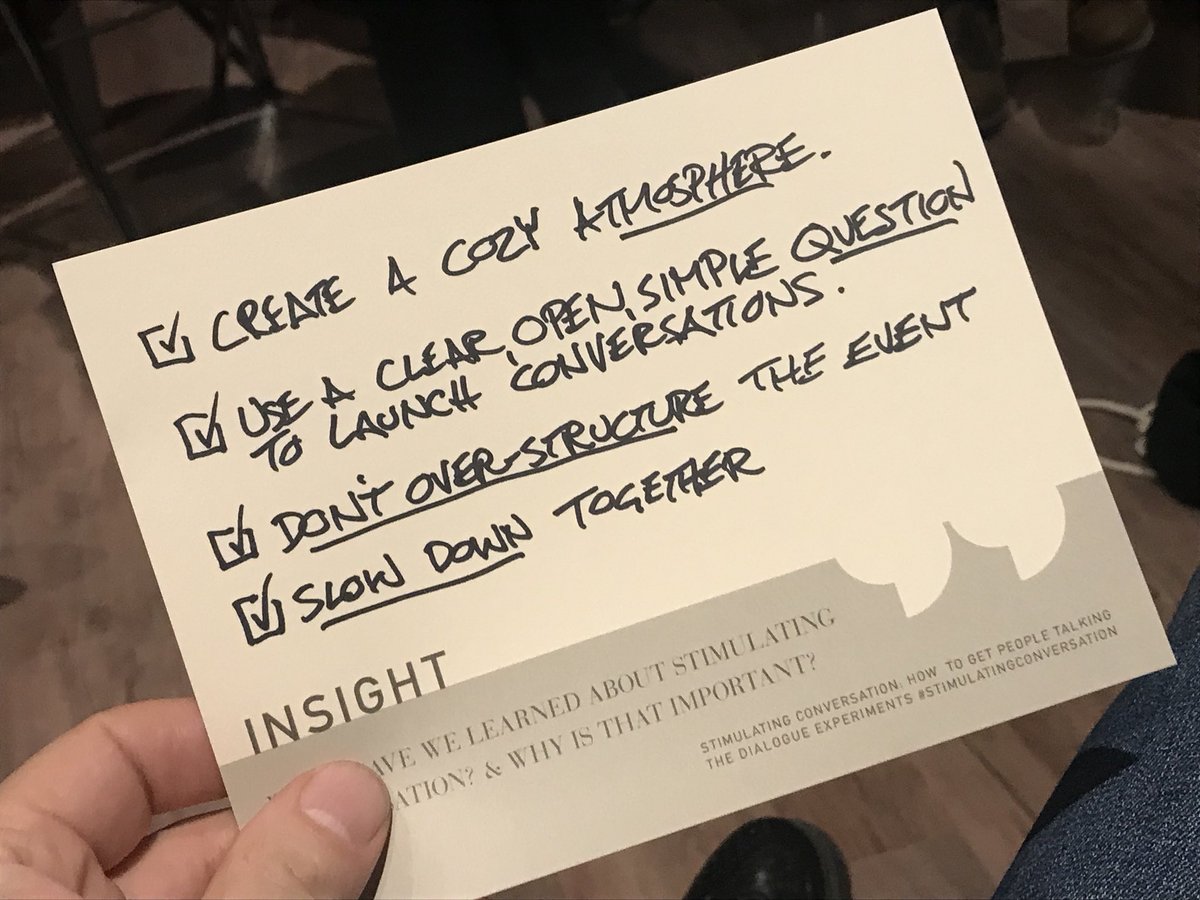 CREATE A COZY ATMOSPHERE.
USE A CLEAR, OPEN, SIMPLE QUESTION
TO LAUNCH CONVERSATIONS.
DON'T OVER-STRUCTURE THE EVENT
SLOW DOWN TOGETHER
INSIGHT
WE LEARNED ABOUT STIMULATING
& WHY IS THAT IMPORTANT?
STIMULATING CONVERSATION: HOW TO GET PEOPLE TALKING
THE DIALOGUE EXPERIMENTS #STIMULATINGCONVERSATION